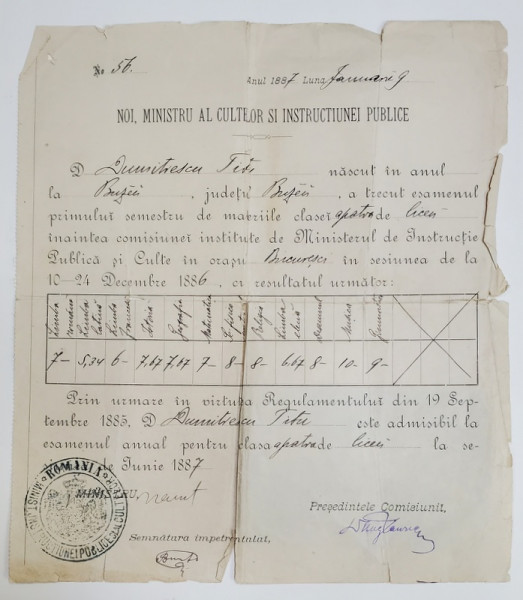 No 56.
Anul 1887 Luna Januarie 9
NOI, MINISTRU AL CULTELOR SI INSTRUCTIUNEI PUBLICE
D Dumitrescu Titu născut în anul
la Buzěu, județu Buzěu, a trecut esamenul
primului semestru de materiile clasei a patra de liceu
înaintea comisiunei institute de Ministerul de Instrucție
Publică și Culte în orașu Bucuresci în sesiunea de la
10-24 Decembre 1886, cu resultatul următor:
Limba română Limba latină Limba Istoria Geografia Matematica Religia Limba elenă Desemnul Musica Gimnastica
7- 5,34 6- 7.67 7,67 7- 8- 8- 6.67 8- 10- 9-
Prin urmare în virtutea Regulamentului din 19 Sep-
tembre 1885. D Dumitrescu Titu este admisibil la
esamenul anual pentru clasa a patra de liceu la se-
de Junie 1887
MINISTRU,
Președintele Comisiunii,
Semnătura impetrantului,
ROMÂNIA